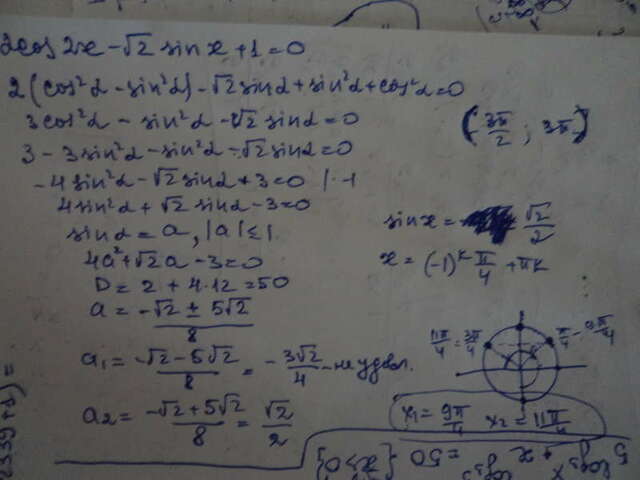 2cos2x - √2 sinx + 1 = 0
2(cos²α - sin²α) - √2 sinα + sin²α + cos²α = 0
3cos²α - sin²α - √2 sinα = 0
3 - 3sin²α - sin²α - √2 sinα = 0
-4sin²α - √2 sinα + 3 = 0 | ·-1
4sin²α + √2 sinα - 3 = 0
sinα = a, |a| ≤ 1
4a² + √2a - 3 = 0
D = 2 + 4·12 = 50
a = (-√2 ± 5√2)/8
a₁ = (-√2 - 5√2)/8 = -3√2/4 - не удовл.
a₂ = (-√2 + 5√2)/8 = √2/2
(3π/2 ; 3π)
sinx = √2/2
x = (-1)ᵏ π/4 + πk
11π/4 = 3π/4
π/4 - 9π/4
x₁ = 9π/4 x₂ = 11π/4
= 50 {x>0}